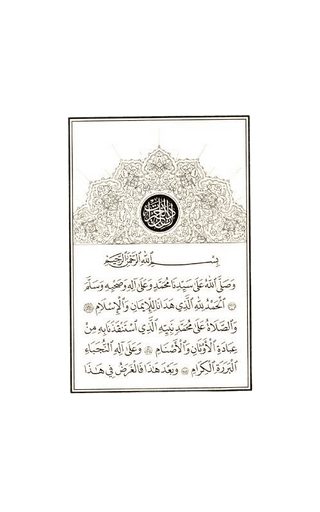 دلائل الخيرات
بِسْمِ اللَّهِ الرَّحْمَٰنِ الرَّحِيمِ
وَصَلَّى اللَّهُ عَلَى سَيِّدِنَا مُحَمَّدٍ وَعَلَى آلِهِ وَصَحْبِهِ وَسَلَّمَ
الْحَمْدُ لِلَّهِ الَّذِي هَدَانَا لِلْإِيمَانِ وَالْإِسْلَامِ
وَالصَّلَاةُ عَلَى مُحَمَّدٍ نَبِيِّهِ الَّذِي اسْتَنْقَذَنَا بِهِ مِنْ
عِبَادَةِ الْأَوْثَانِ وَالْأَصْنَامِ وَعَلَى آلِهِ النُّجَبَاءِ
الْبَرَرَةِ الْكِرَامِ وَبَعْدَ هَذَا فَالْغَرَضُ فِي هَذَا